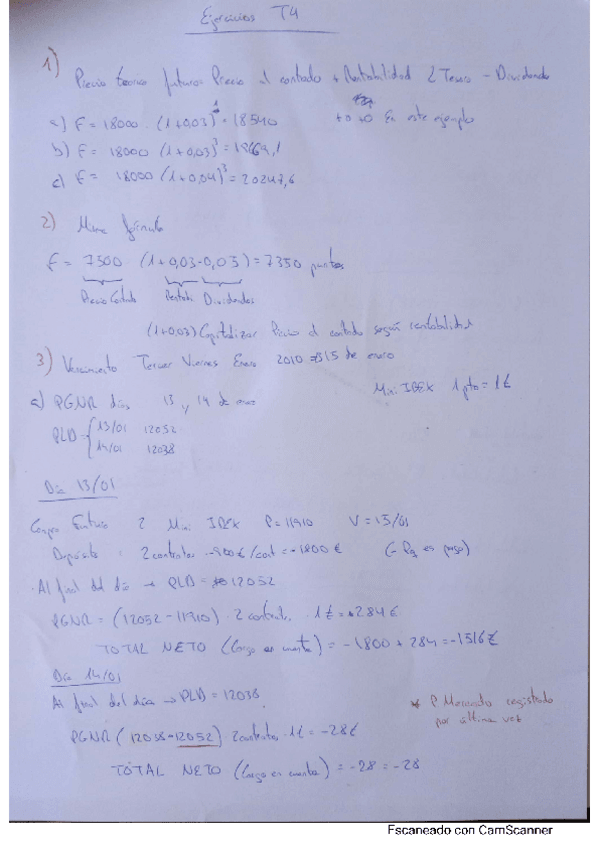 Ejercicios T4
1) Precio teórico futuro = Precio al contado + Rentabilidad L Tesoro - Dividendo
a) F = 18000 · (1+0,03)¹ = 18540   +0 +0 En este ejemplo
b) F = 18000 (1+0,03)³ =
c) F = 18000 (1+0,04)³ = 20247,6
2) Misma fórmula
F = 7500 · (1+0,03-0,05) = 7350 puntos
Precio Contado Rentab. Dividendos
(1+0,03) Capitalizar Precio al contado según rentabilidad
3) Vencimiento Tercer Viernes Enero 2010 => 15 de enero
Mini IBEX 1 pto = 1€
a) PGNR días 13 y 14 de enero
PLD { 13/01 12052
14/01 12038
Día 13/01
Compra Futuro 2 Mini IBEX P = 11910 V = 15/01
Depósito : 2 contratos · -900€/cont = -1800 € (- Pq es pago)
· Al final del día → PLD = 12052
PGNR = (12052 - 11910) · 2 contratos · 1€ = +284€
TOTAL NETO (Cargo en cuenta) = -1800 + 284 = -1516€
Día 14/01
Al final del día → PLD = 12038
* P Mercado registrado
por última vez
PGNR (12038-12052) · 2 contratos · 1€ = -28€
TOTAL NETO (Cargo en cuenta) = -28 = -28
Escaneado con CamScanner